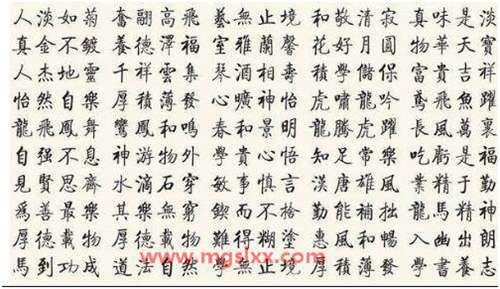 人淡如菊 奮翮高飛 藝無止境 和敬清寂 真味是淡
真金不鍍 養德澤福 室雅蘭馨 花好月圓 物華天寶
人杰地靈 千祥雲集 琴酒相壽 積學儲保 富貴吉祥
怡然自樂 厚積薄發 心曠神怡 虎嘯龍吟 鳶飛魚躍
龍飛鳳舞 鸞鳳和鳴 春和景明 龍騰虎躍 長風萬裏
自强不息 神游物外 學貴心悟 知足常樂 吃虧是福
見賢思齊 水滴石穿 敏事慎言 漢唐雄風 業精于勤
爲善最樂 其樂無窮 鍥而不捨 勤能補拙 龍馬精神
厚德載物 厚德載物 難得糊塗 惠風和暢 入幽出朗
馬到功成 道法自然 學無止境 厚積薄發 養志
www.mgslxx.com